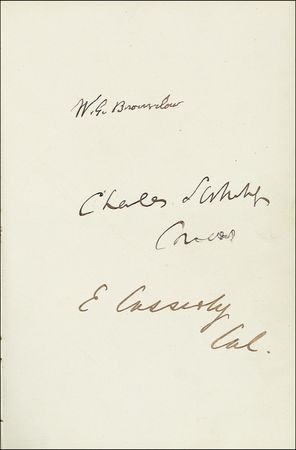 W. G. Brownlow
Charles
E Casserly
Cal.